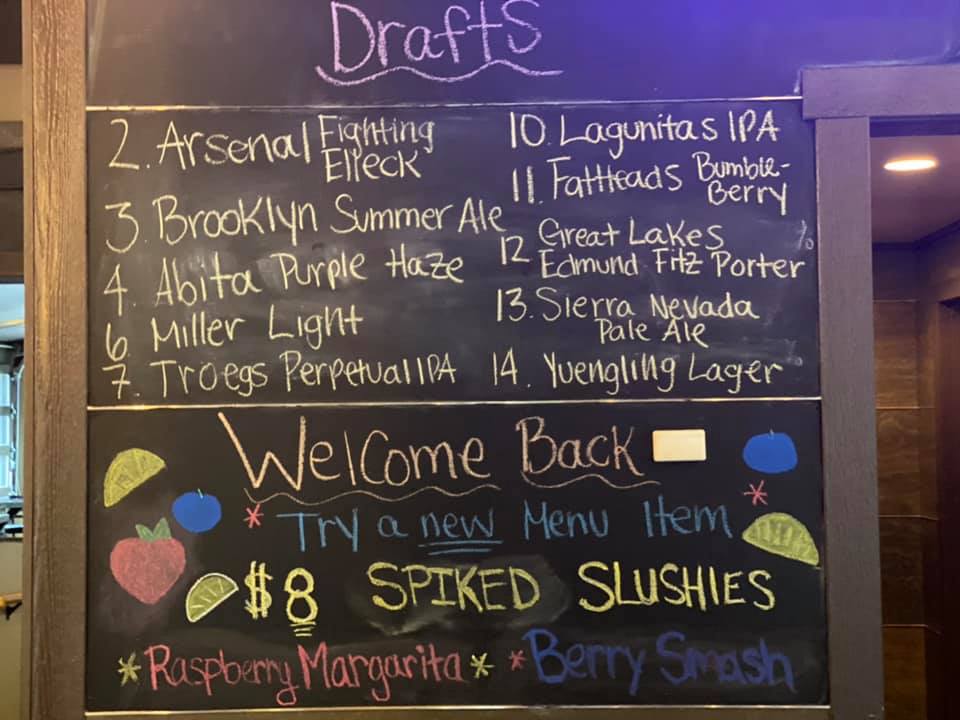 Drafts
2. Arsenal Fighting
Elleck
3. Brooklyn Summer Ale
4. Abita Purple Haze
6. Miller Light
7. Troegs Perpetual IPA
10. Lagunitas IPA
11. FatHeads Bumble-
Berry
12 Great Lakes
Edmund Fitz Porter
13. Sierra Nevada
Pale Ale
14. Yuengling Lager
Welcome Back
* Try a new Menu Item *
$8 SPIKED SLUSHIES
* Raspberry Margarita * * Berry Smash